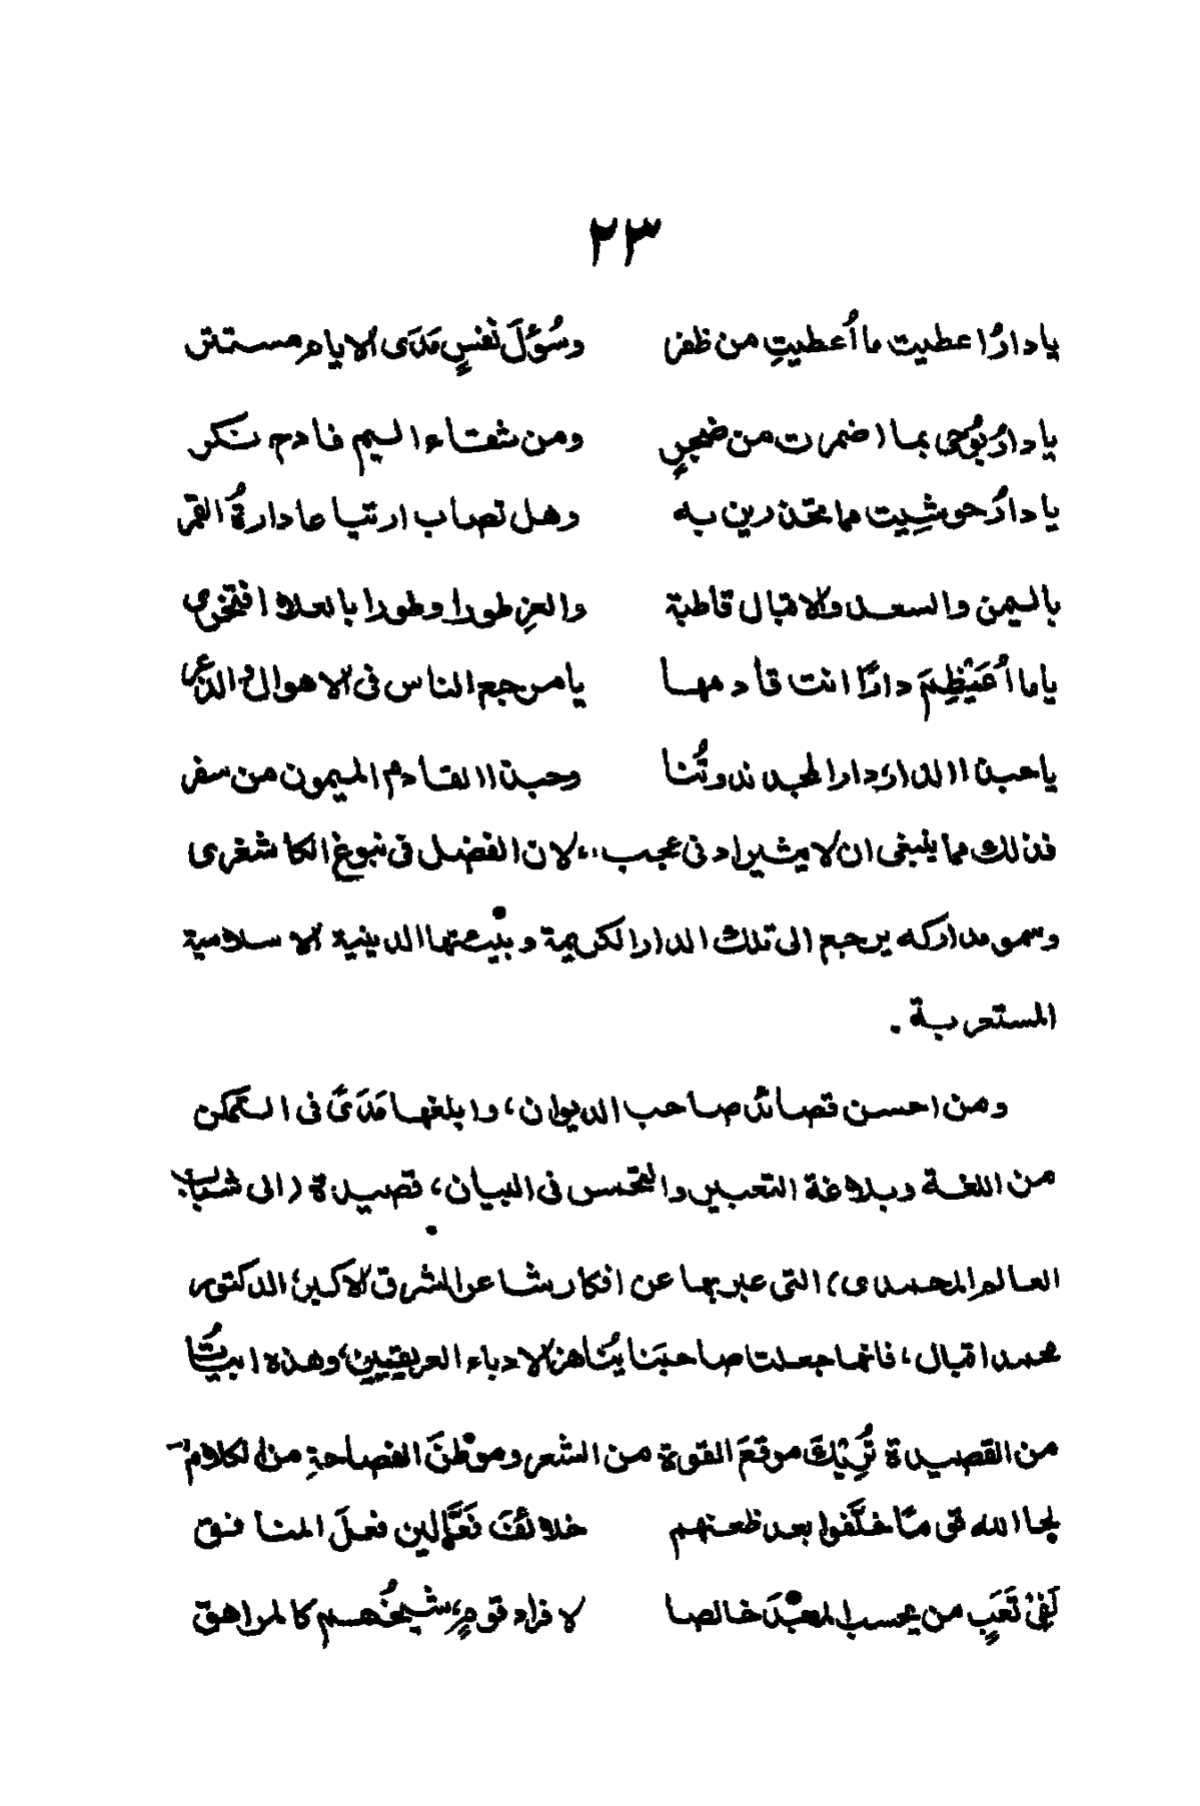 ٢٣
يا دارُ اعطيت ما أُعطيتِ من ظفر وسُؤلَ نفسٍ مَدَى الايام مستتر
يا دارُ بُوحى بما اضمرت من ضجرٍ ومن شفتاء اليم فادح نكر
يا دارُ حوشِيت مما تحذرين به وهل تصاب ارتيا عا دارةُ القمر
باليمن والسعد والاقبال قاطبة والعزِ طورا وطورا بالعلا افتخرى
ياما أُعَيْظِمَ دارًا انت قأدمها يامرجع الناس فى الاهوال والذعر
يا حبذا الدار دار المجد ندوتُنا وحبذا القادم الميمون من سفر
فذلك مما ينبغى ان لا يثير اد نى عجب ،، لان الفضل فى نبوغ الكاشغرى
وسمو مداركه يرجع الى تلك الدار الكريمة وبيئتها الدينية الاسلامية
المستعربة .
ومن احسن قصائد صاحب الديوان، وابلغها مَدَىً فى التمكن
من اللغة وبلاغة التعبير والتحسس فى البيان، قصيدة (الى شباب
العالم المحمدى) التى عبر بها عن افكار شاعر الشرق الاكبر، الدكتور
محمد اقبال، فانها جعلت صاحبَنا يُناهز الادباء العريقيين، وهذه ابياتٌ
من القصيدة تُريْكَ موقعَ القوة من الشعر وموطنَ الفصاحةِ من الكلام
لحا الله قى مًا خلَّفوا بعد ظعنهم خلائفَ نَعَّالين فعلَ المنافق
لَفِىْ تَعَبٍ من يحسب المجْدَ خالصا لافراد قومٍ، شيخُهم كالمراهق